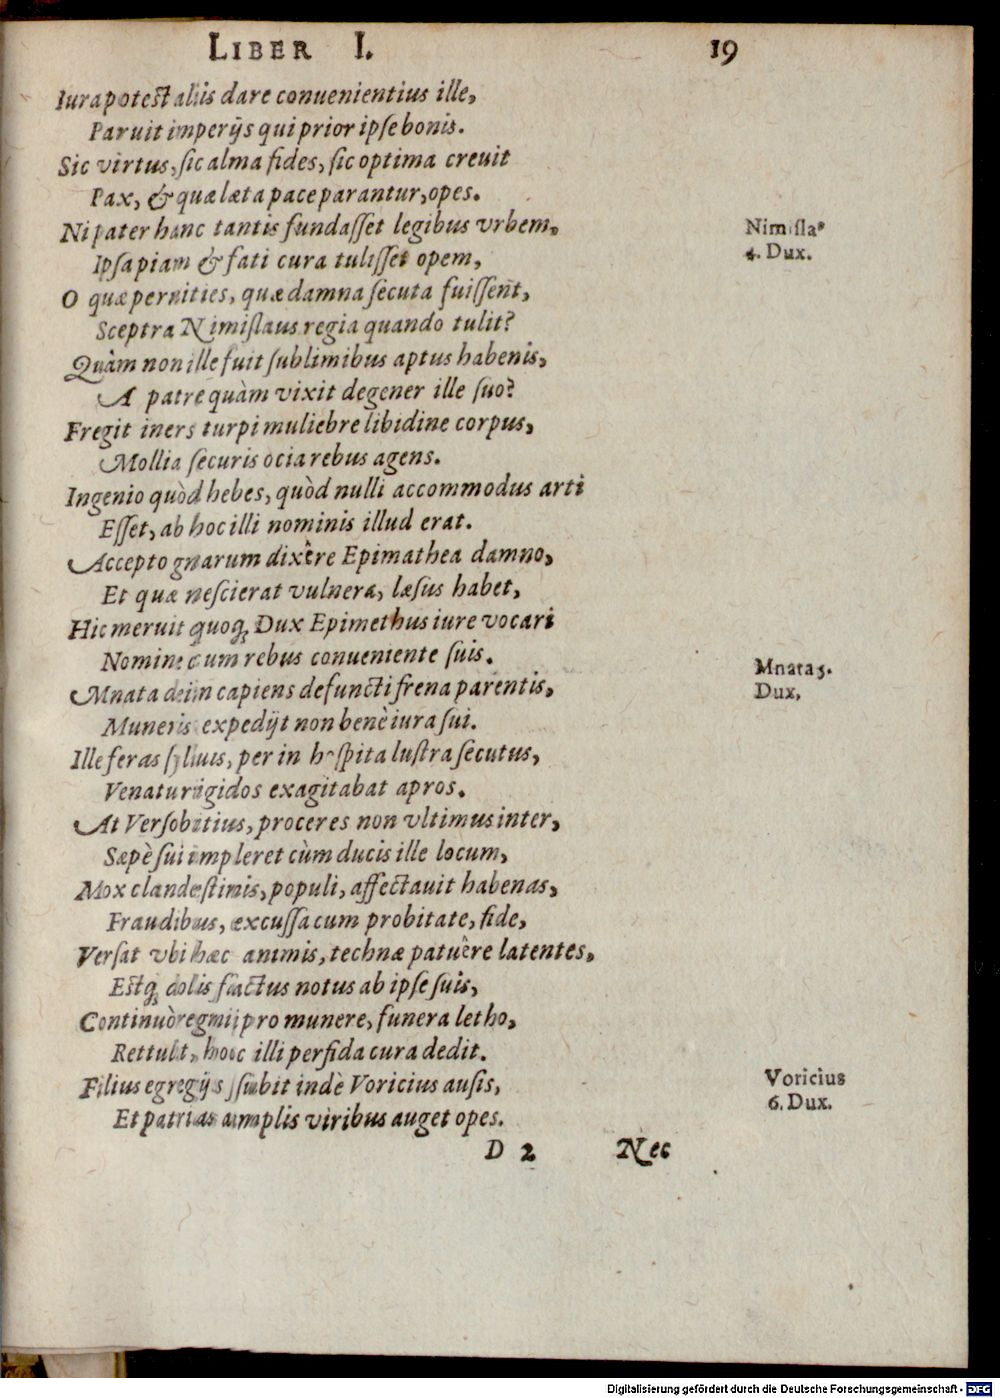 LIBER I. 19
Iura potest aliis dare conuenientius ille,
Paruit imperijs qui prior ipse bonis.
Sic virtus, sic alma fides, sic optima creuit
Pax, & quæ læta pace parantur, opes.
Ni pater hanc tantis fundasset legibus vrbem,
Nimisla⁹
4. Dux.
Ipsa piam & fati cura tulisset opem,
O quæ pernities, quæ damna secuta fuissent,
Sceptra Nimislaus regia quando tulit?
Quàm non ille fuit sublimibus aptus habenis,
A patre quàm vixit degener ille suo?
Fregit iners turpi muliebre libidine corpus,
Mollia securis ocia rebus agens.
Ingenio quòd hebes, quòd nulli accommodus arti
Esset, ab hoc illi nominis illud erat.
Accepto gnarum dixêre Epimathea damno,
Et quæ nescierat vulnera, læsus habet,
Hic meruit quoq; Dux Epimethus iure vocari
Nomine cum rebus conueniente suis.
Mnata 5.
Dux,
Mnata dein capiens defuncti frena parentis,
Muneris expedijt non benè iura sui.
Ille feras syluis, per inhospita lustra secutus,
Venatu rigidos exagitabat apros.
At Versobitius, proceres non vltimus inter,
Sæpè sui impleret cùm ducis ille locum,
Mox clandestinis, populi, affectauit habenas,
Fraudibus, excussa cum probitate, fide,
Versat vbi hæc animis, technæ patuêre latentes,
Estq; dolis factus notus ab ipse suis,
Continuò regmij pro munere, funera letho,
Rettulit, hoc illi perfida cura dedit.
Filius egregijs subit indè Voricius ausis,
Voricius
6. Dux.
Et patrias amplis viribus auget opes.
D 2 Nec
Digitalisierung gefördert durch die Deutsche Forschungsgemeinschaft - DFG